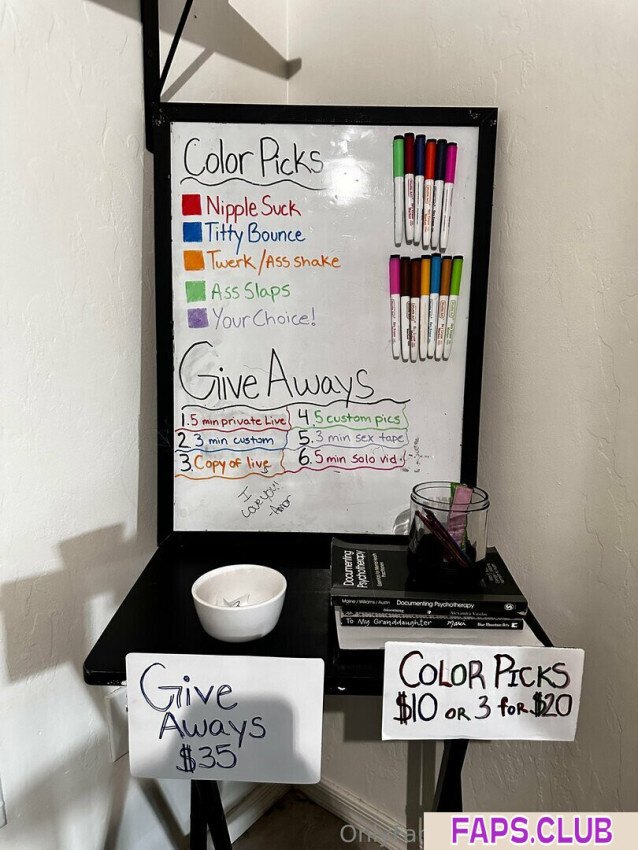 Color Picks
Nipple Suck
Titty Bounce
Twerk/Ass shake
Ass Slaps
Your Choice!
Give Aways
1. 5 min private Live
2. 3 min custom
3. Copy of live
4. 5 custom pics
5. 3 min sex tape
6. 5 min solo vid.
I
Love you!!
-Amor
Documenting
Psychotherapy
Documenting Psychotherapy
To My Granddaughter
Give
Aways
$35
COLOR PICKS
$10 OR 3 for $20
FAPS.CLUB